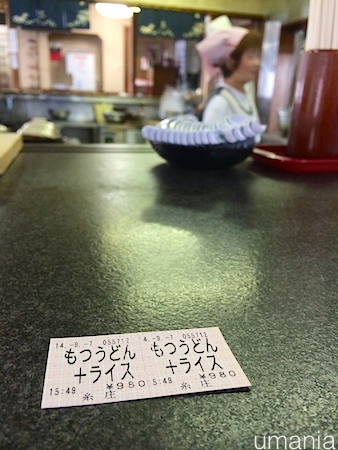 14.-9.-7 055712 4.-9.-7 055712
もつうどん もつうどん
+ライス +ライス
¥980 ¥980
15:49 糸庄 5:49 糸庄
umania